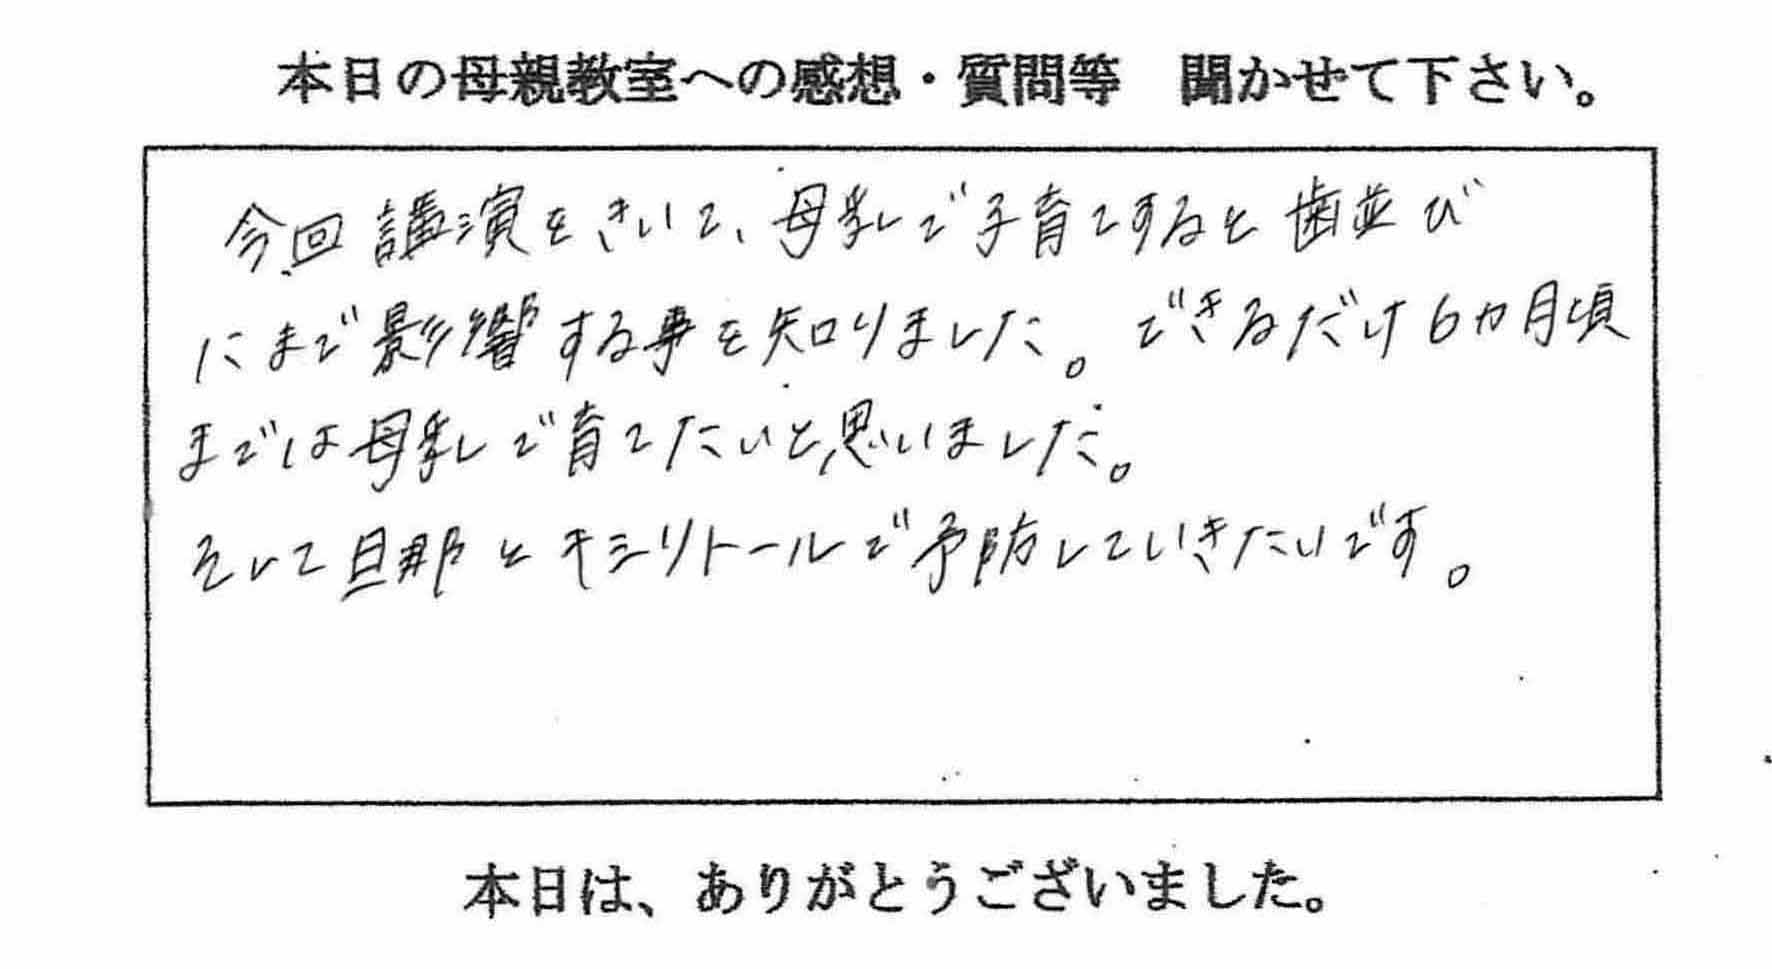 本日の母親教室への感想・質問等　聞かせて下さい。
今回講演をきいて、母乳で子育てすると歯並び
にまで影響する事を知りました。できるだけ6カ月頃
までは母乳で育てたいと思いました。
そして旦那とキシリトールで予防していきたいです。
本日は、ありがとうございました。